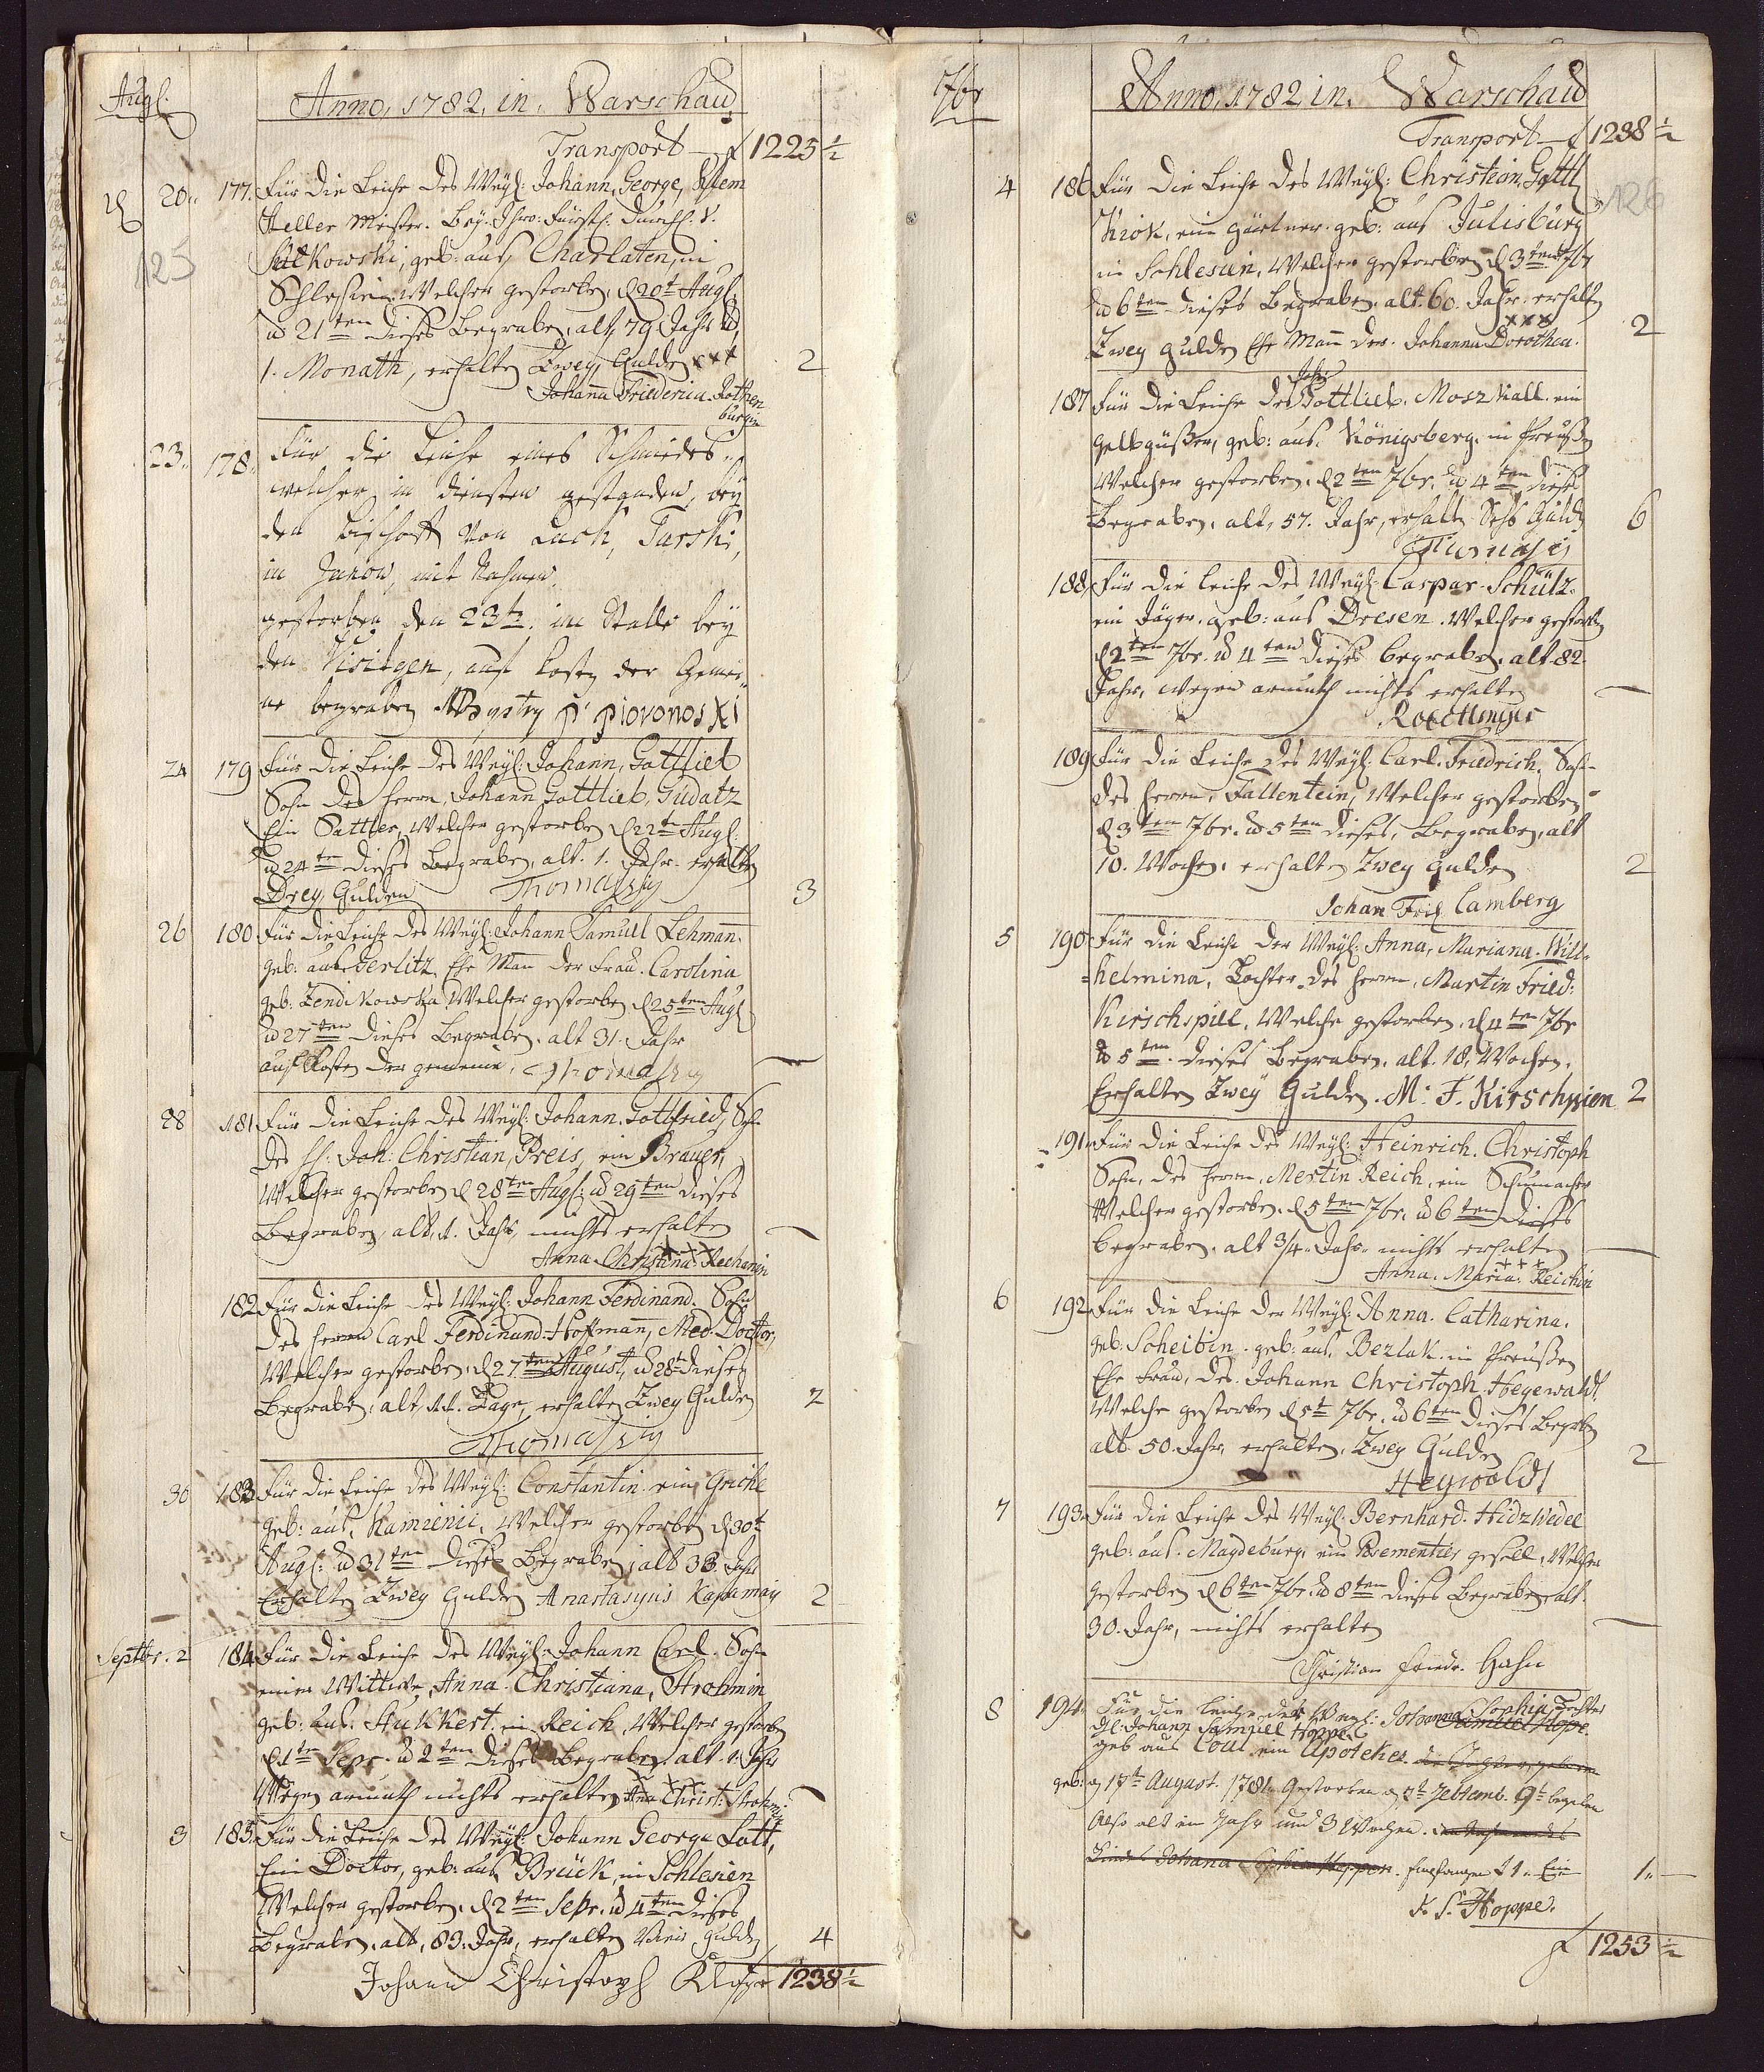 Augl:
Anno, 1782, in, Warschau,
Transport — f 1225 ½
20. 177. Für die Leiche des Weyl: Johann, George,
Steller Meister. Bey. Ihro: Fürstl: Durchl: V.
Sulkowski, geb: aus, Charlaten, in
Schlesien. Welcher gestorben, d 20t Augl.
ud 21ten dieses Begraben, alt, 79 Jahr ud
1. Monath, erhalten Zwey, Gulden xxx 2
Johanna Friederica. Rothen
burgin
125
23. 178. Für die Leiche eines Schmiedes
welcher in diensten gestanden, bey
den Bischoff von Luck, Turski,
in Janow, mit Nahmen.
gestorben den 23t. im Stalle bey
den Visitgen, auf Kosten der Gemei
ne begraben piovonoski
24 179 Für die Leiche des Weyl: Johann, Gottlieb
Sohn des Herrn, Johann Gottlieb, Gudatz
Ein Sattler, Welcher gestorben d 22ten Augl:
ud 24ten dieses Begraben, alt. 1. Jahr. erhalten
Drey, Gulden Thomassy 3
26 180 Für die Leiche des Weyl: Johann Samuel Lehmann.
geb: aus Gerlitz. Ehe Man der Frau. Carolina
geb: Zendikowska Welcher gestorben d 25ten Augl
ud 27ten dieses Begraben. alt 31. Jahr
auf Kosten der gemeine. Thomassy —
28 181 Für die Leiche des Weyl: Johann. Gottfried, Sohn
des H: Joh: Christian, Preis, ein Brauer,
Welcher gestorben d 28ten Augl: ud 29ten dieses
Begraben, alt, 1. Jahr, nichts erhalten —
Anna. Christina. xxx
182 Für die Leiche des Weyl: Johann Ferdinand. Sohn
des Herrn Carl Ferdinand: Hoffmann, Med: Doctor,
Welcher gestorben, d 27ten August, ud 28t dieses
Begraben, alt 11. Tage, erhalten Zwey Gulden 2
Thomassy
30 183 Für die Leiche des Weyl: Constantin. ein Griche
geb: aus, Kamienii. Welcher gestorben d 30t
Augl: ud 31ten dieses Begraben, alt 33. Jahr
Erhalten Zwey Gulden Anastasyus 2
Septbr. 2 184 Für die Leiche des Weyl: Johann Carl. Sohn
einer Wittwe, Anna. Christiana, Strohmin
geb: aus. Stukkert. in Reich, Welcher gestorben
d 1ten Sepr. ud 2ten dieses Begraben. alt. 1. Jahr
Wegen armuth nichts erhalten Ana xxx Christ: —
3 185. Für die Leiche des Weyl: Johann George Lott,
Ein Doctor, geb: aus Brück, in Schlesien
Welcher gestorben. d 2ten Sepr. ud 4ten dieses
Begraben. alt, 83. Jahr, erhalten Vier, Gulden 4
Johann Christoph 1238 ½
7br
Anno, 1782 in. Warschau
Transport — f 1238 ½
126
4 186 Für die Leiche des Weyl: Christian, Gottl
Krok, ein Gärtner. geb: aus Julisburg
in Schlesien, Welcher gestorben, d 3ten 7br
ud 6ten dieses Begraben. alt. 60. Jahr. erhalten
Zwey Gulden Ehe Mann der. Johanna Dorothea. xxx 2
187 Für die Leiche des Joh: Gottlieb. Mosz ein
Gelbgüßer, geb: aus. Königsberg. in Preußen
Welcher gestorben. d 2ten 7br. ud 4ten dieses
Begraben. alt, 57. Jahr, erhalten Sechs Gulden 6
Thomasi
188. Für die Leiche des Weyl: Caspar. Schütz.
ein Jäger. geb: aus Dresen. Welcher gestorben
d 2ten 7br. ud 4ten dieses begraben. alt 82.
Jahr, wegen armuth nichts erhalten —
189 Für die Leiche des Weyl: Carl. Friedrich. Sohn
des Herrn, Fallentein, Welcher gestorben
d 3ten 7br. ud 5ten dieses, Begraben, alt
10. Wochen. erhalten Zwey Gulden 2
Johan Frid. Camberg
5 190 Für die Leiche der Weyl: Anna, Mariana. Will-
helmina, Tochter des Herrn, Martin Fried:
Kirschspill, Welche gestorben, d 4ten 7br
ud 5ten. dieses Begraben. alt. 18. Wochen.
Erhalten Zwey Gulden. M: F. Kirschpien 2
191 Für die Leiche des Weyl: Heinrich. Christoph
Sohn, des Herrn, Mertin Reich, ein Schumacher
Welcher gestorben. d 5ten 7br. ud 6ten dieses
begraben. alt 3/4. Jahr. nichts erhalten —
Anna. Maria. xxx Reichin
6 192 Für die Leiche der Weyl: Anna. Catharina.
geb: Scheibin. geb: aus, Bezlak. in Preußen
Ehe Frau, des. Johann Christoph Hegewaldt
Welche gestorben d 5t 7br. ud 6ten dieses Begraben
alt 50. Jahr. erhalten, Zwey Gulden 2
Heywoldt
7 193. Für die Leiche des Weyl: Bernhard. Hidzwedel
geb: aus. Magdeburg, ein Posementier gesell, Welcher
gestorben d 6ten 7br. ud 8ten dieses Begraben alt.
30. Jahr, nichts erhalten —
Christian Friedr. Hahn
8 194. Für die Leiche der Weyl: Johanna Sophia Tochter
H: Johann Samuel Hoppe Samuel Hope
geb aus ein Apoteker.
geb: d 17ten August. 1781. Gestorben d 7t Septemb. 9t begraben
Also alt ein Jahr und 3 Wochen.
Kindes Johana Sophia Hoppen. Empfangen f 1. Ein 1. —
J. S. Hoppe.
f 1253 ½